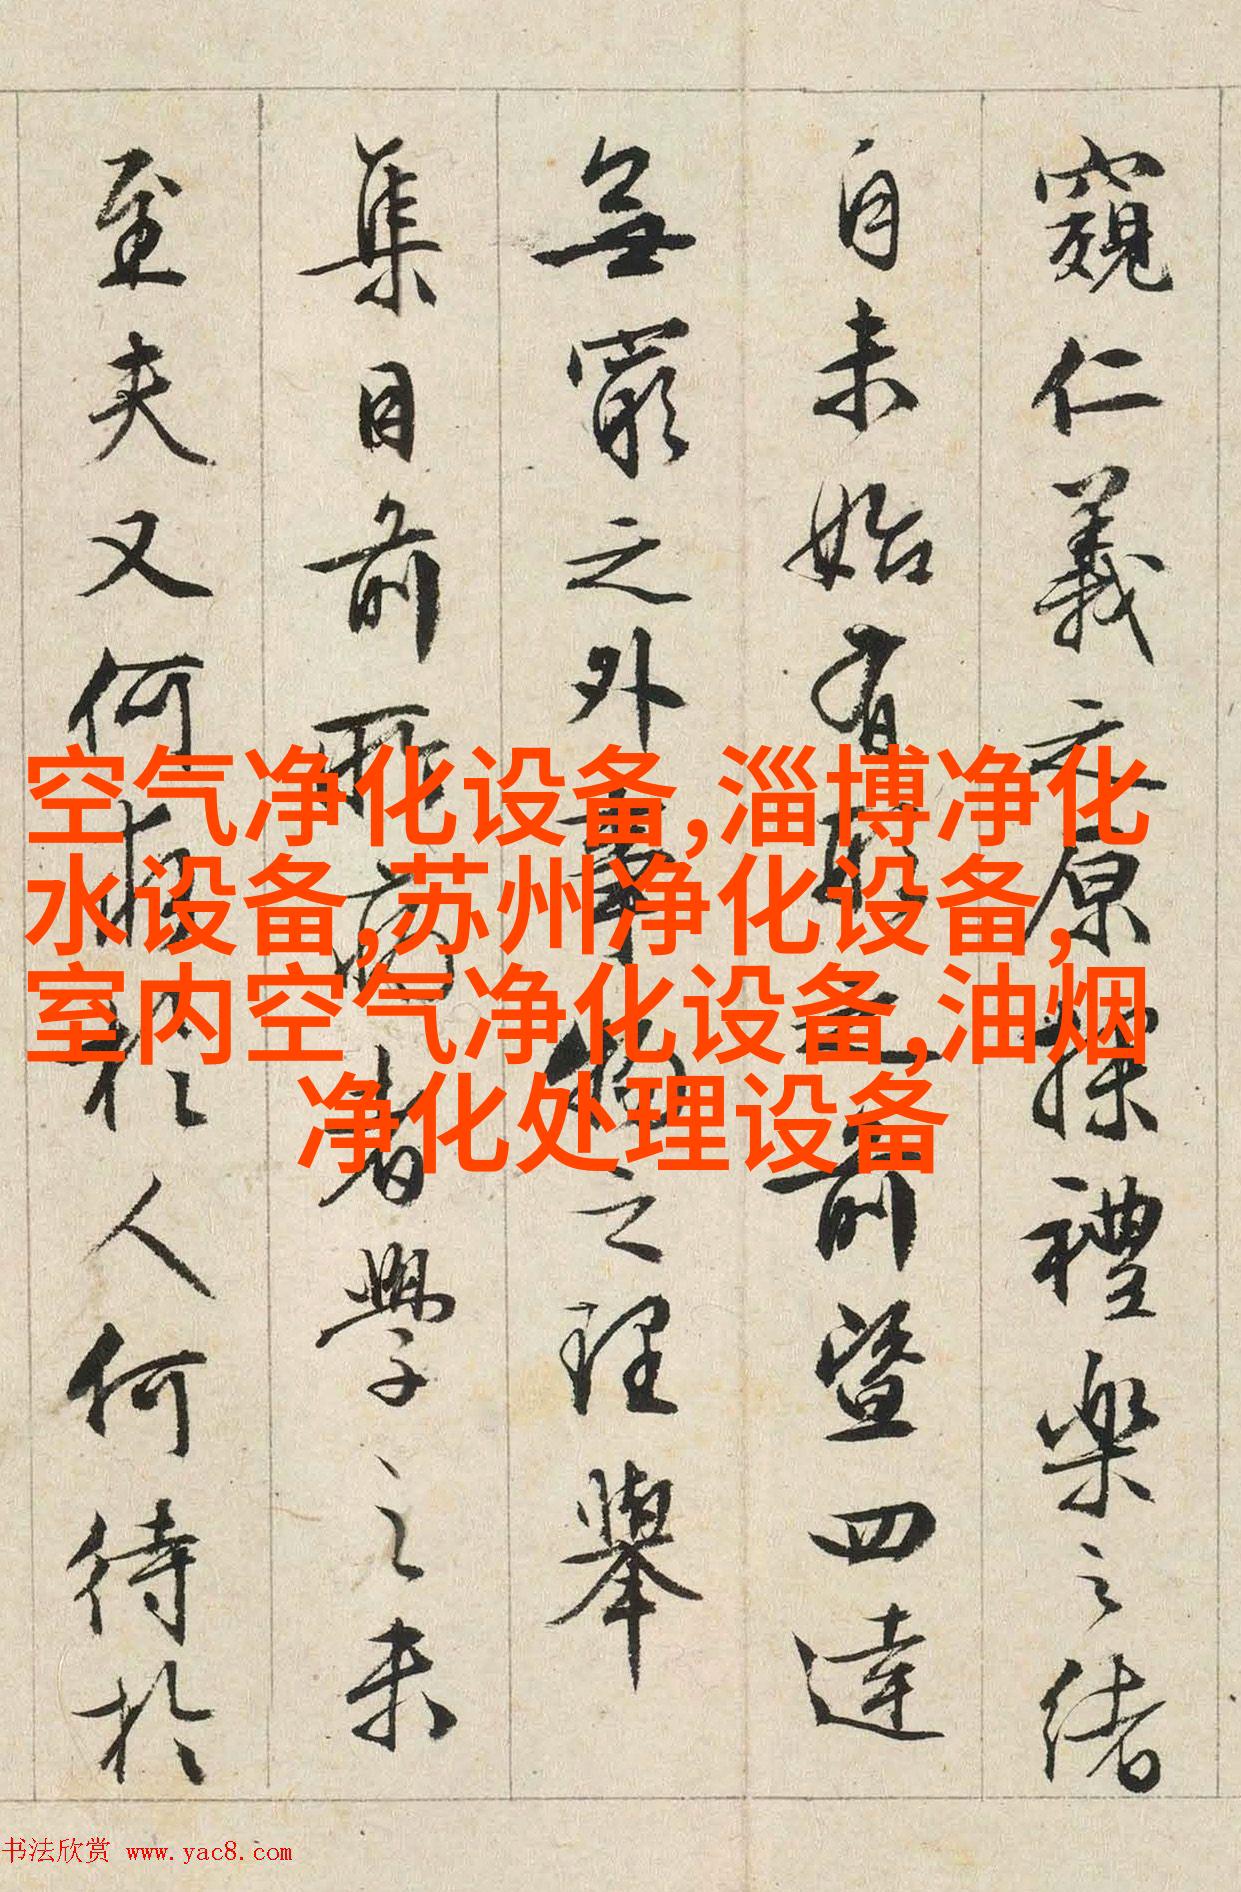 窺仁義之原探禮樂之緒
自未始有形之前暨四達
無窮之外事物之理舉
集目前所病者學之未
至夫又何損於人何待於
空气净化设备,淄博净化
水设备,苏州净化设备,
室内空气净化设备,油烟
净化处理设备
书法欣赏 www.yac8.com